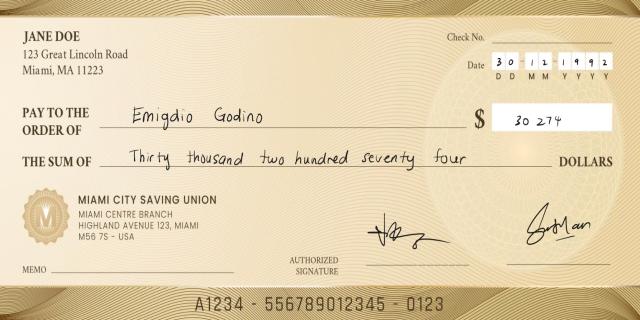 JANE DOE
123 Great Lincoln Road
Miami, MA 11223
Check No.
Date 30-12-1992
D D M M Y Y Y Y
PAY TO THE ORDER OF Emigdio Godino $ 30 274
THE SUM OF Thirty thousand two hundred seventy four DOLLARS
M
MIAMI CITY SAVING UNION
MIAMI CENTRE BRANCH
HIGHLAND AVENUE 123, MIAMI
M56 7S - USA
MEMO
AUTHORIZED SIGNATURE
A1234 - 556789012345 - 0123